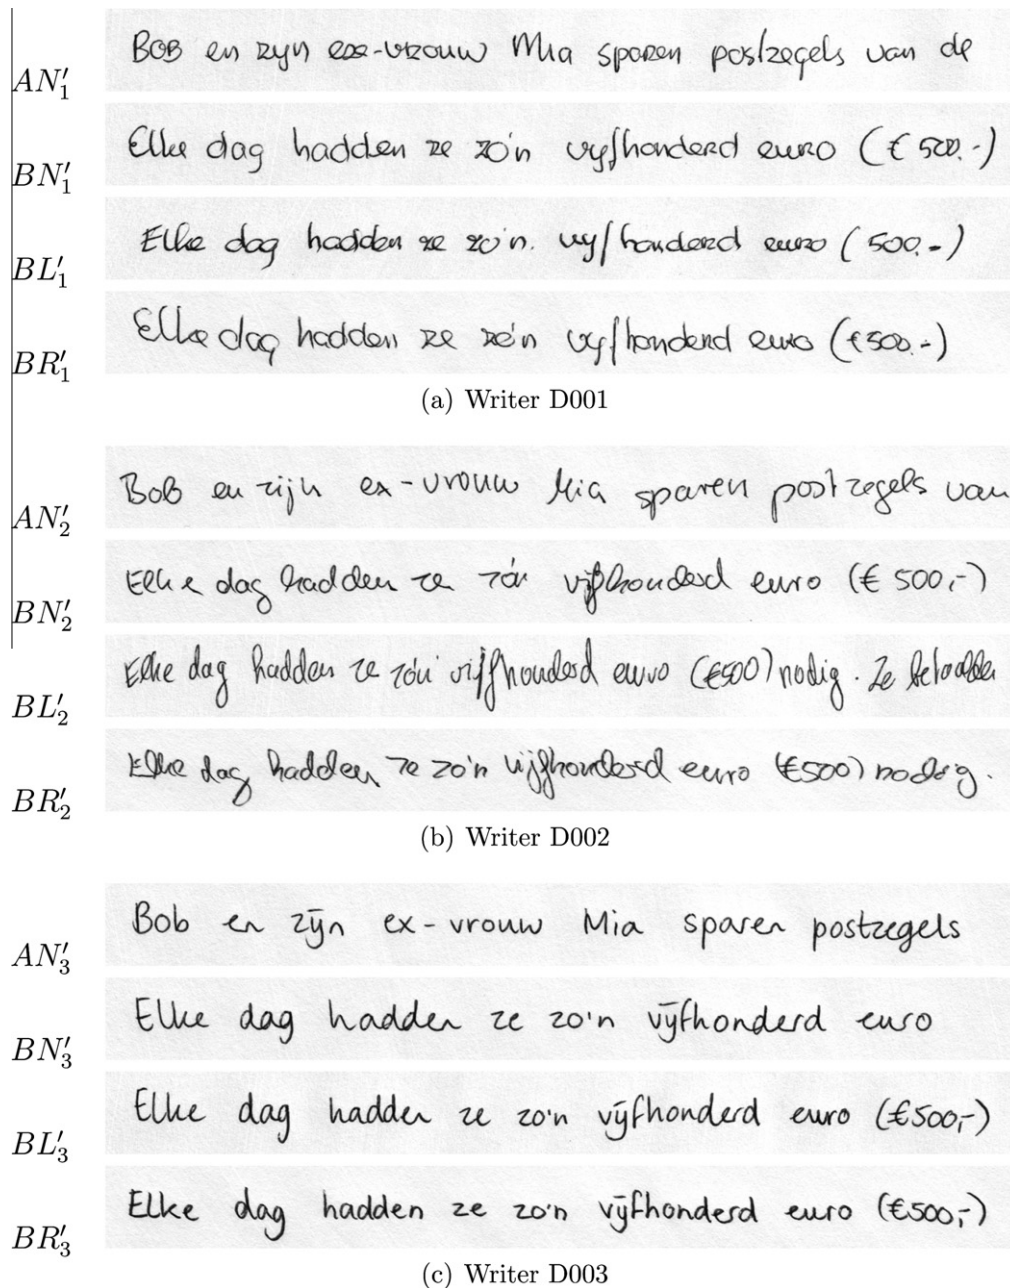 AN′₁ Bob en zijn exe-vrouw Mia sparen postzegels van de
BN′₁ Elke dag hadden ze zo'n vijfhonderd euro (€ 500.-)
BL′₁ Elke dag hadden ze zo'n. vijfhonderd euro (500.-)
BR′₁ Elke dag hadden ze zo'n vijfhonderd euro (€500.-)
(a) Writer D001
AN′₂ Bob en zijn ex-vrouw Mia sparen postzegels van
BN′₂ Elke dag hadden ze zo'n vijfhonderd euro (€ 500,-)
BL′₂ Elke dag hadden ze zo'n vijfhonderd euro (€500) nodig. Ze betaalden
BR′₂ Elke dag hadden ze zo'n vijfhonderd euro (€500) nodig.
(b) Writer D002
AN′₃ Bob en zijn ex-vrouw Mia sparen postzegels
BN′₃ Elke dag hadden ze zo'n vijfhonderd euro
BL′₃ Elke dag hadden ze zo'n vijfhonderd euro (€500,-)
BR′₃ Elke dag hadden ze zo'n vijfhonderd euro (€500,-)
(c) Writer D003